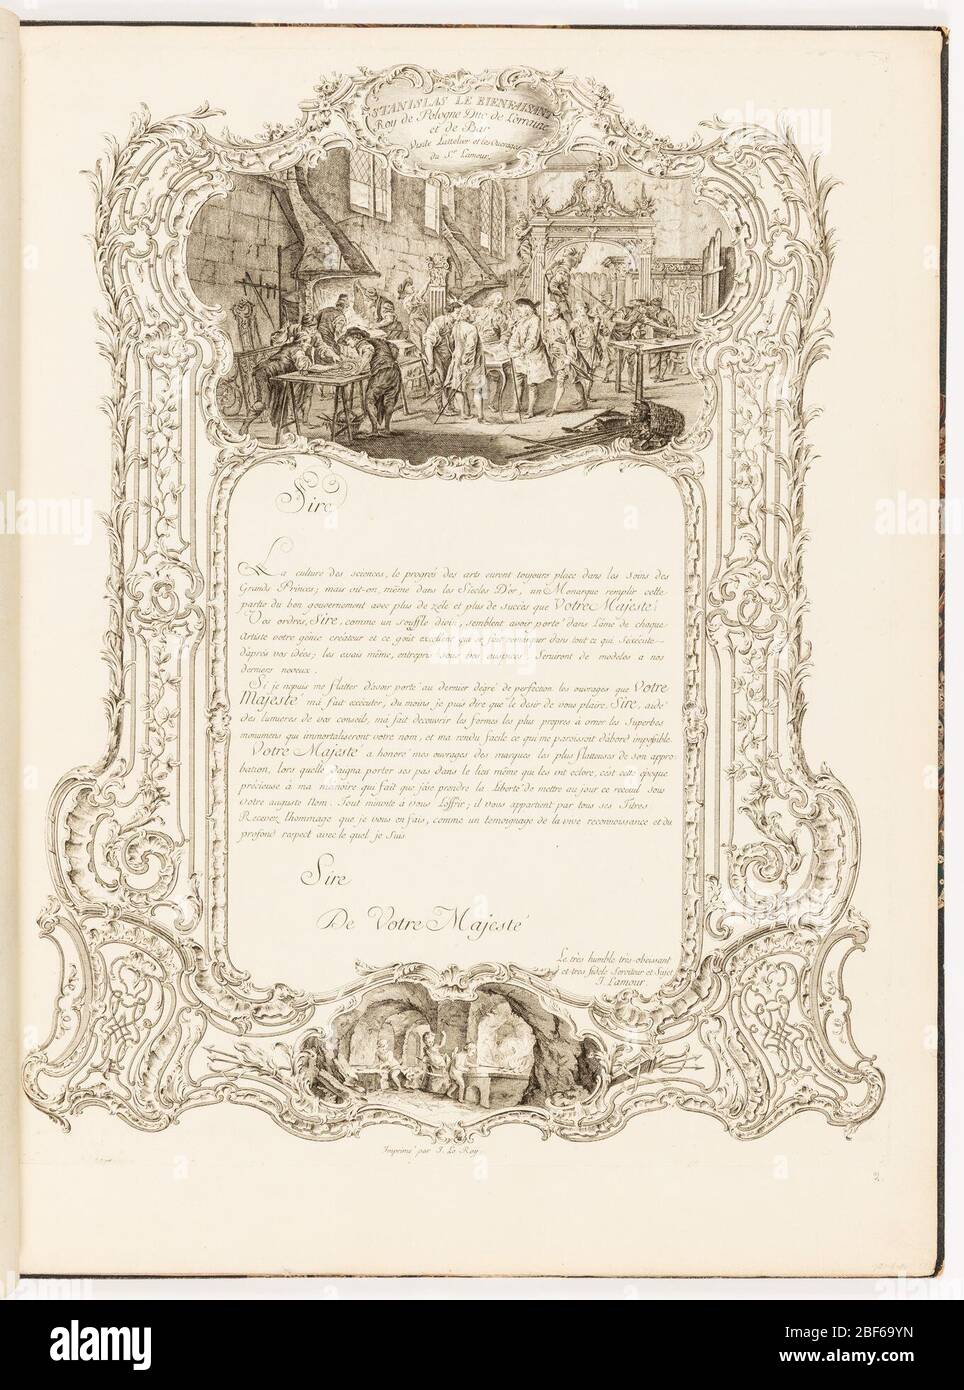 STANISLAS LE BIENFAISANT
Roy de Pologne Duc de Lorraine
et de Bar
Visite Lattelier et les Ouvrages
du Sr. Lamour.
Sire
La culture des sciences, le progrés des arts eurent toujours place dans les soins des
Grands Princes; mais vit-on, même dans les Siecles D'or, un Monarque remplir cette
partie du bon gouvernement avec plus de zéle et plus de succès que Votre Majesté!
Vos ordres, Sire, comme un souffle divin, semblent avoir porté dans L'ame de chaque
Artiste votre génie créateur et ce goût excellent qui se fait remarquer dans tout ce qui s'exécute
d'après vos idées; les essais même, entrepris sous vos auspices Serviront de modeles a nos
derniers neveux.
Si je nepuis me flatter d'avoir porté au dernier dégré de perfection les ouvrages que Votre
Majesté m'a fait exécuter, du moins je puis dire que le desir de vous plaire, Sire, aidé
des lumieres de vos conseils, m'a fait decouvrir les formes les plus propres à orner les Superbes
monumens qui immortaliseront votre nom, et m'a rendu facile ce qui me paroissoit d'abord impossible.
Votre Majesté a honoré mes ouvrages des marques les plus flatteuses de son appro-
bation, lors quelle daigna porter ses pas dans le lieu même qui les vit eclore, c'est cette époque
précieuse à ma mémoire qui fait que j'aie prendre la liberté de mettre au jour ce receuil sous
votre auguste Nom. Tout m'invite à vous L'offrir; il vous appartient par tous ses Titres
Recevez l'hommage que je vous en fais, comme un temoignage de la vive reconnoissance et du
profond respect avec le quel je Suis
Sire
De Votre Majesté
Le très humble très-obeissant
et très fidele Serviteur et Sujet
J. Lamour.
Imprimé par J. Le Roy.
2.
alamy
Image ID: 2BF69YN
www.alamy.com